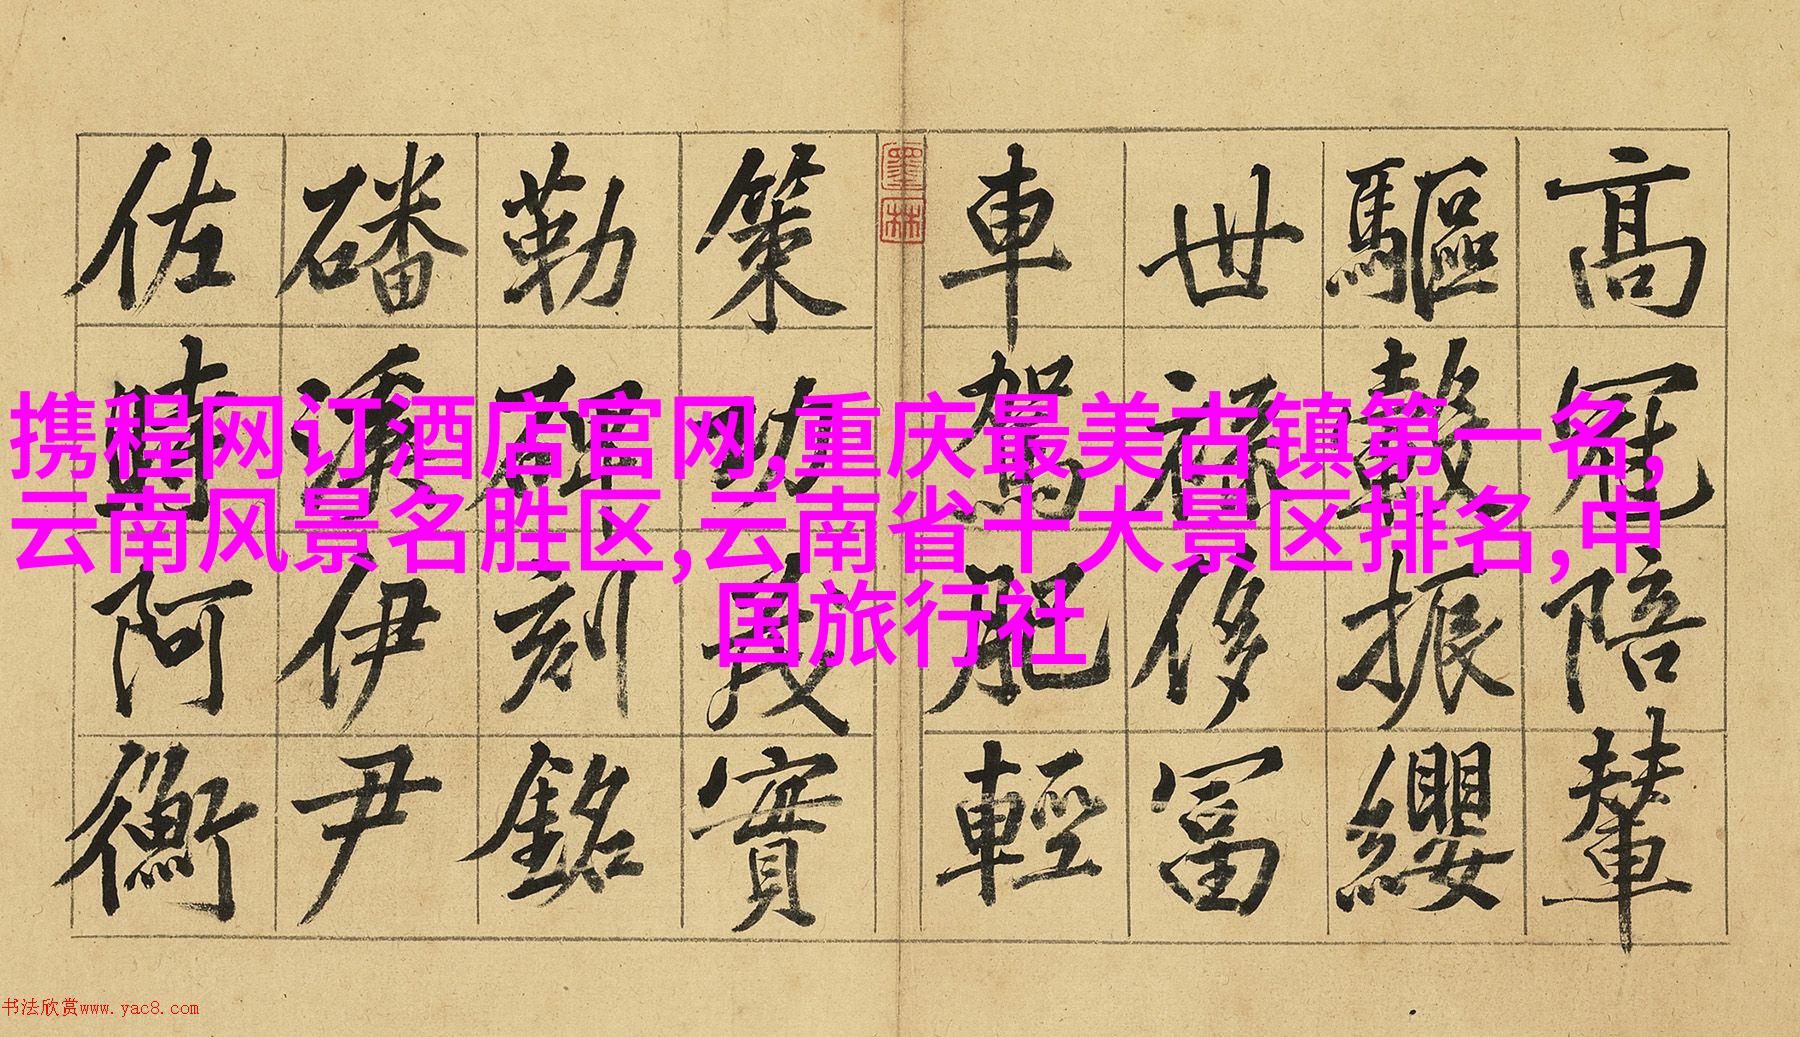 高冠陪輦
驅轂振纓
世祿侈冨
車駕肥輕
墨林
策功茂實
勒碑刻銘
磻溪伊尹
佐時阿衡
携程网订酒店官网,重庆最美古镇第一名,
云南风景名胜区,云南省十大景区排名,中
国旅行社
书法欣赏www.yac8.com